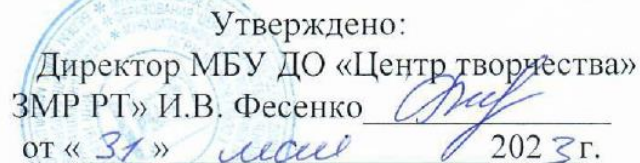 Утверждено:
Директор МБУ ДО «Центр творчества»
ЗМР РТ» И.В. Фесенко
от « 31 » мая 2023 г.